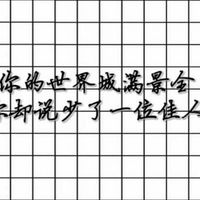 你的世界城满景全
却说少了一位佳人